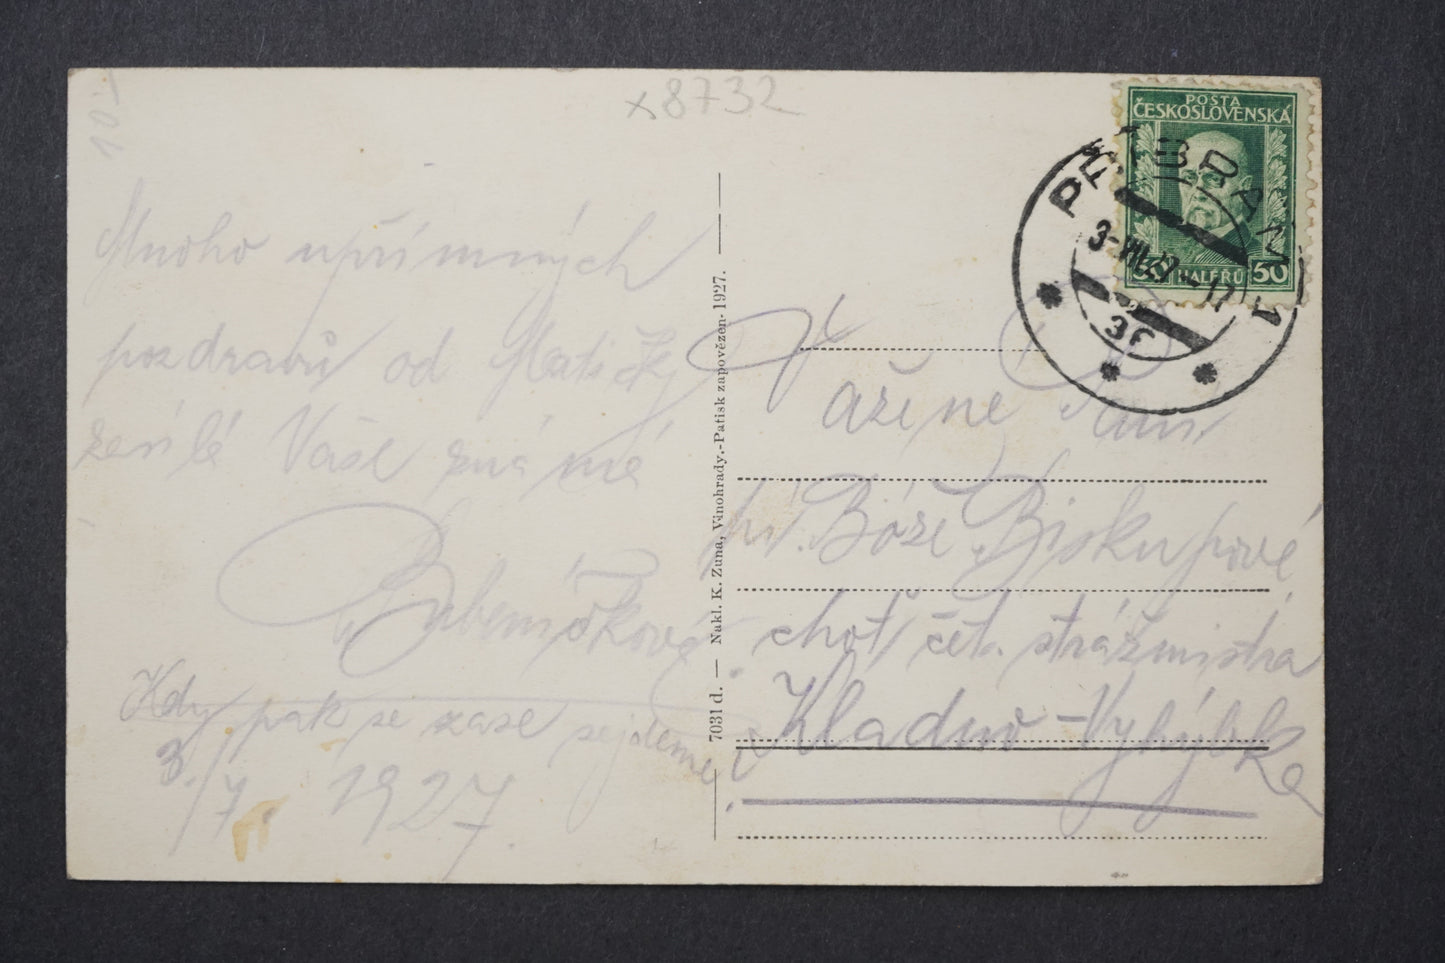 10
x 8732
POŠTA
ČESKOSLOVENSKÁ
50 HALÉŘŮ 50
PŘÍBRAM 1
3-VII.27-17
3f
Mnoho upřímných
pozdravů od Matičky
zasílá Vaše známé
Kdy pak se zase sejdeme
3./7. 1927.
7031 d. — Nakl. K. Zuna, Vinohrady.-Patisk zapovězen- 1927.
Vážené Paní
pí. Boše Biskupové,
choť čet. strážmistra
Kladno - Vyhýbka